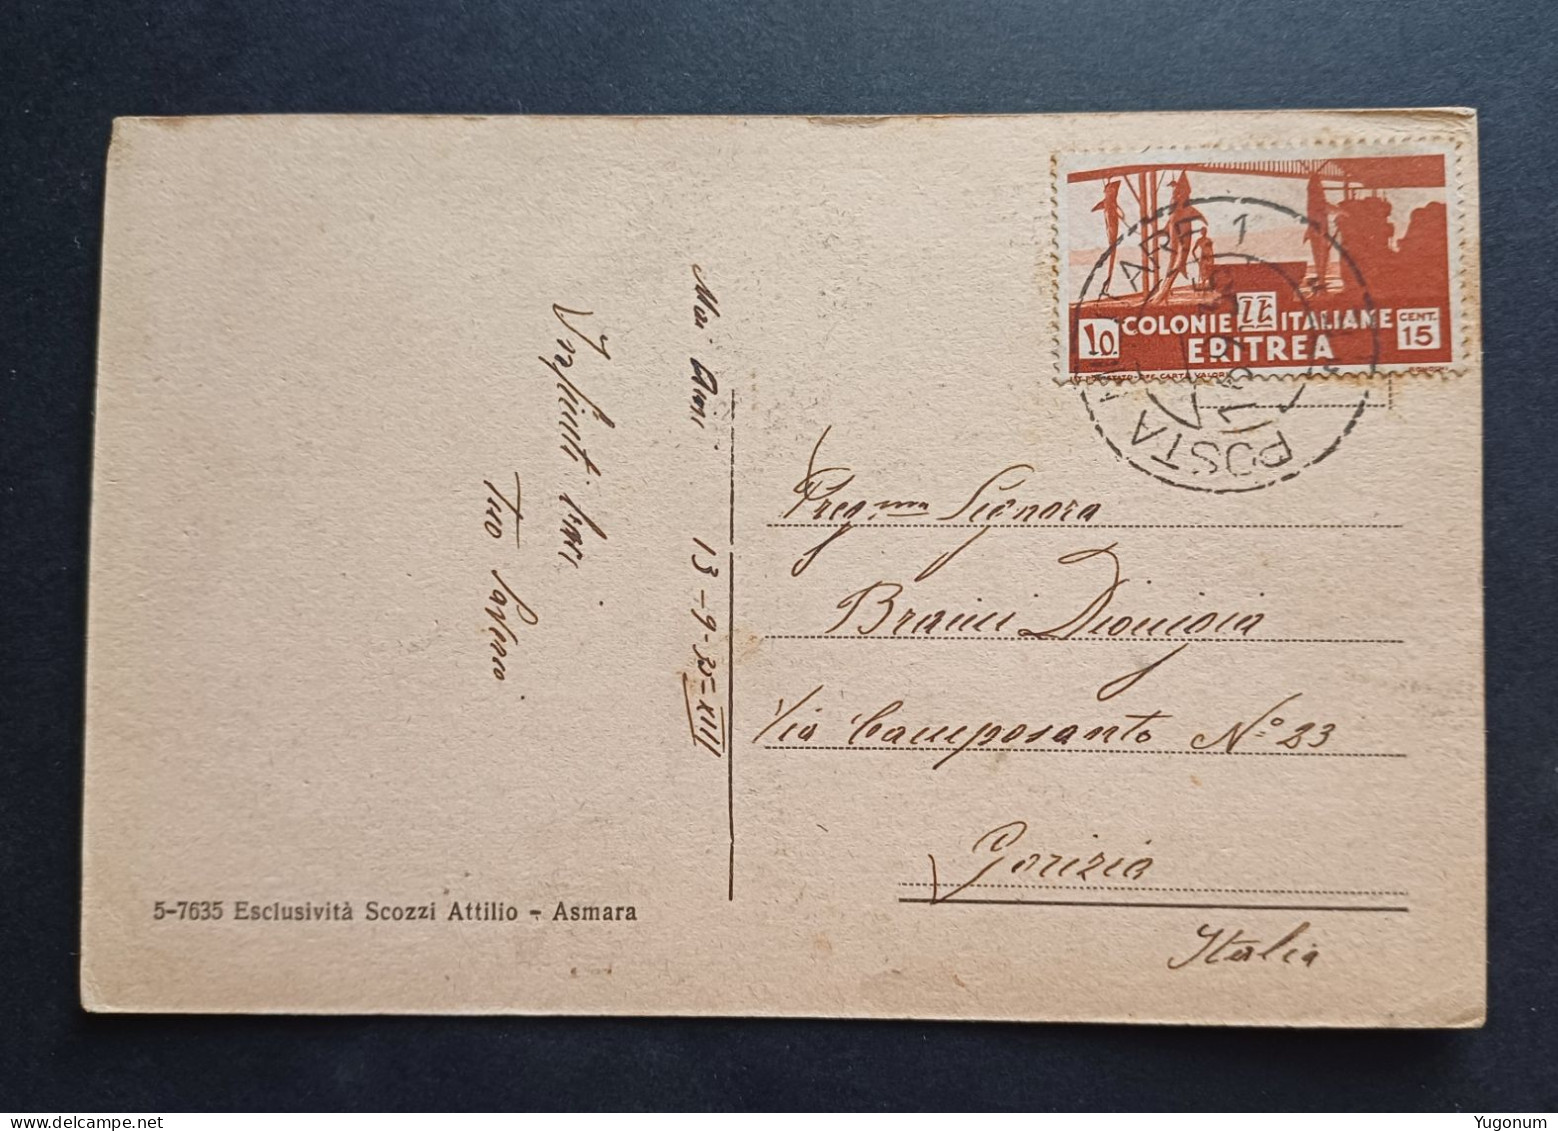 Mai Aini 13-9-35=XIII
Infiniti baci
Tuo Saverio
5-7635 Esclusività Scozzi Attilio - Asmara
10. COLONIE ITALIANE CENT. 15
ERITREA
POSTA MILITARE 1
Preg.ma Signora
Braini Dionigia
Via Camposanto N.o 23
Gorizia
Italia
Yugonum